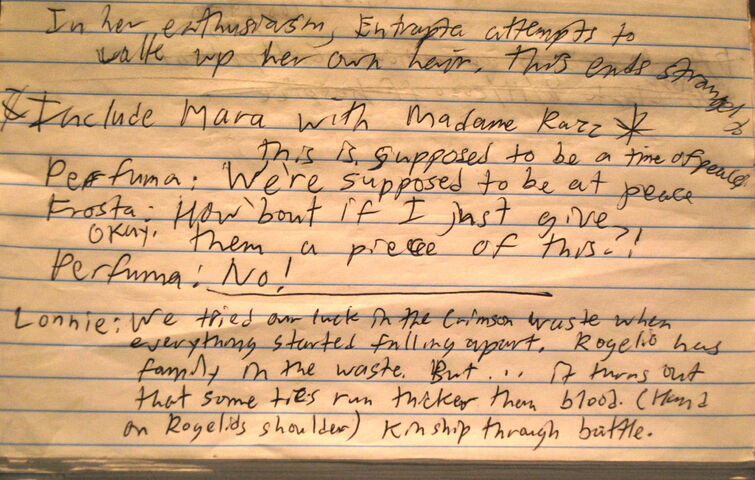 In her enthusiasm, Entrapta attempts to
walk up her own hair. This ends strangely
*Include Mara with Madame Razz *
this is supposed to be a time of peace
Perfuma: We're supposed to be at peace
Frosta: How 'bout if I just give
okay. them a piece of this?!
Perfuma: No!
Lonnie: We tried our luck in the Crimson Waste when
everything started falling apart. Rogelio has
family in the waste. But... it turns out
that some ties run thicker than blood. (Hand
on Rogelios shoulder) Kinship through battle.